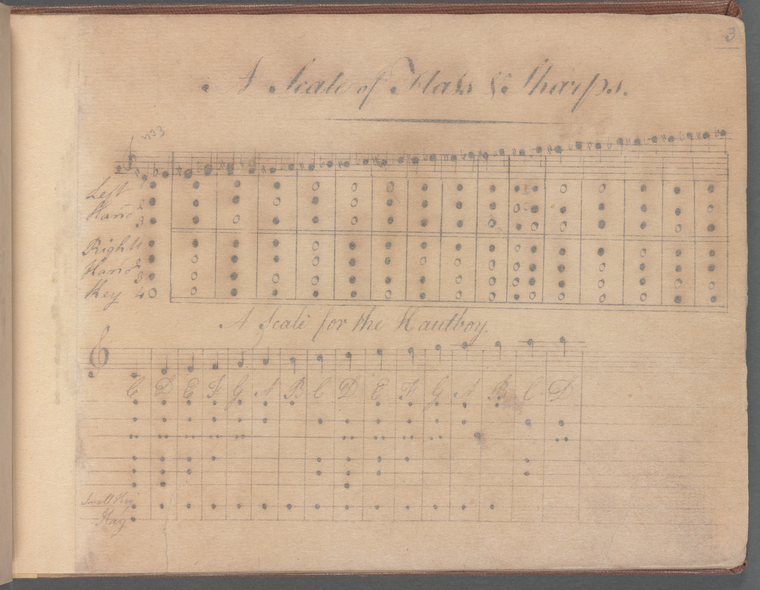 3
A Scale of Flats & Sharps.
Left 1
Hand 2
3
Right 1
Hand 2
3
Key 4
A Scale for the Hautboy.
C D E F G A B C D E F G A B C D
Small Key
Key